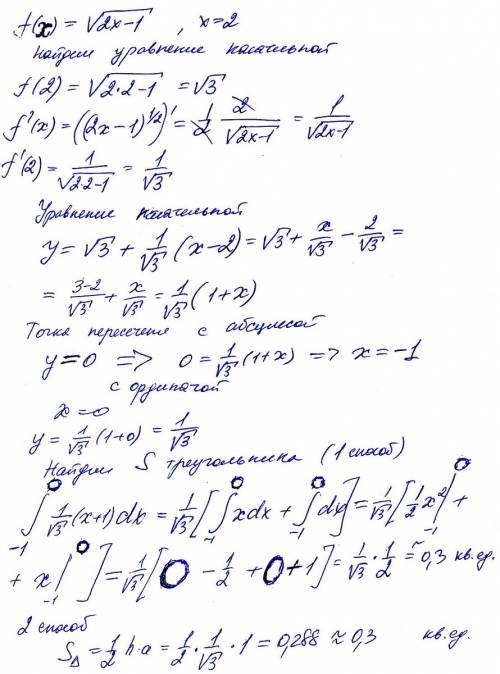 f(x) = √(2x-1) , x=2
Найдем уравнение касательной
f(2) = √(2·2-1) = √3
f'(x) = ((2x-1)^(1/2))' = 1/2 · 2/√(2x-1) = 1/√(2x-1)
f'(2) = 1/√(2·2-1) = 1/√3
Уравнение касательной
y = √3 + 1/√3 (x-2) = √3 + x/√3 - 2/√3 =
= (3-2)/√3 + x/√3 = 1/√3 (1+x)
Точка пересечения с абсциссой
y=0 => 0 = 1/√3 (1+x) => x = -1
с ординатой
x=0
y = 1/√3 (1+0) = 1/√3
Найдем S треугольника (1 способ)
∫_{-1}^{0} 1/√3 (x+1)dx = 1/√3 [∫_{-1}^{0} xdx + ∫_{-1}^{0} dx] = 1/√3 [1/2 x² |_{-1}^{0} +
+ x |_{-1}^{0} ] = 1/√3 [0 - 1/2 + 0 + 1] = 1/√3 · 1/2 ≈ 0,3 кв.ед.
2 способ
S_Δ = 1/2 h·a = 1/2 · 1/√3 · 1 = 0,288 ≈ 0,3 кв.ед.